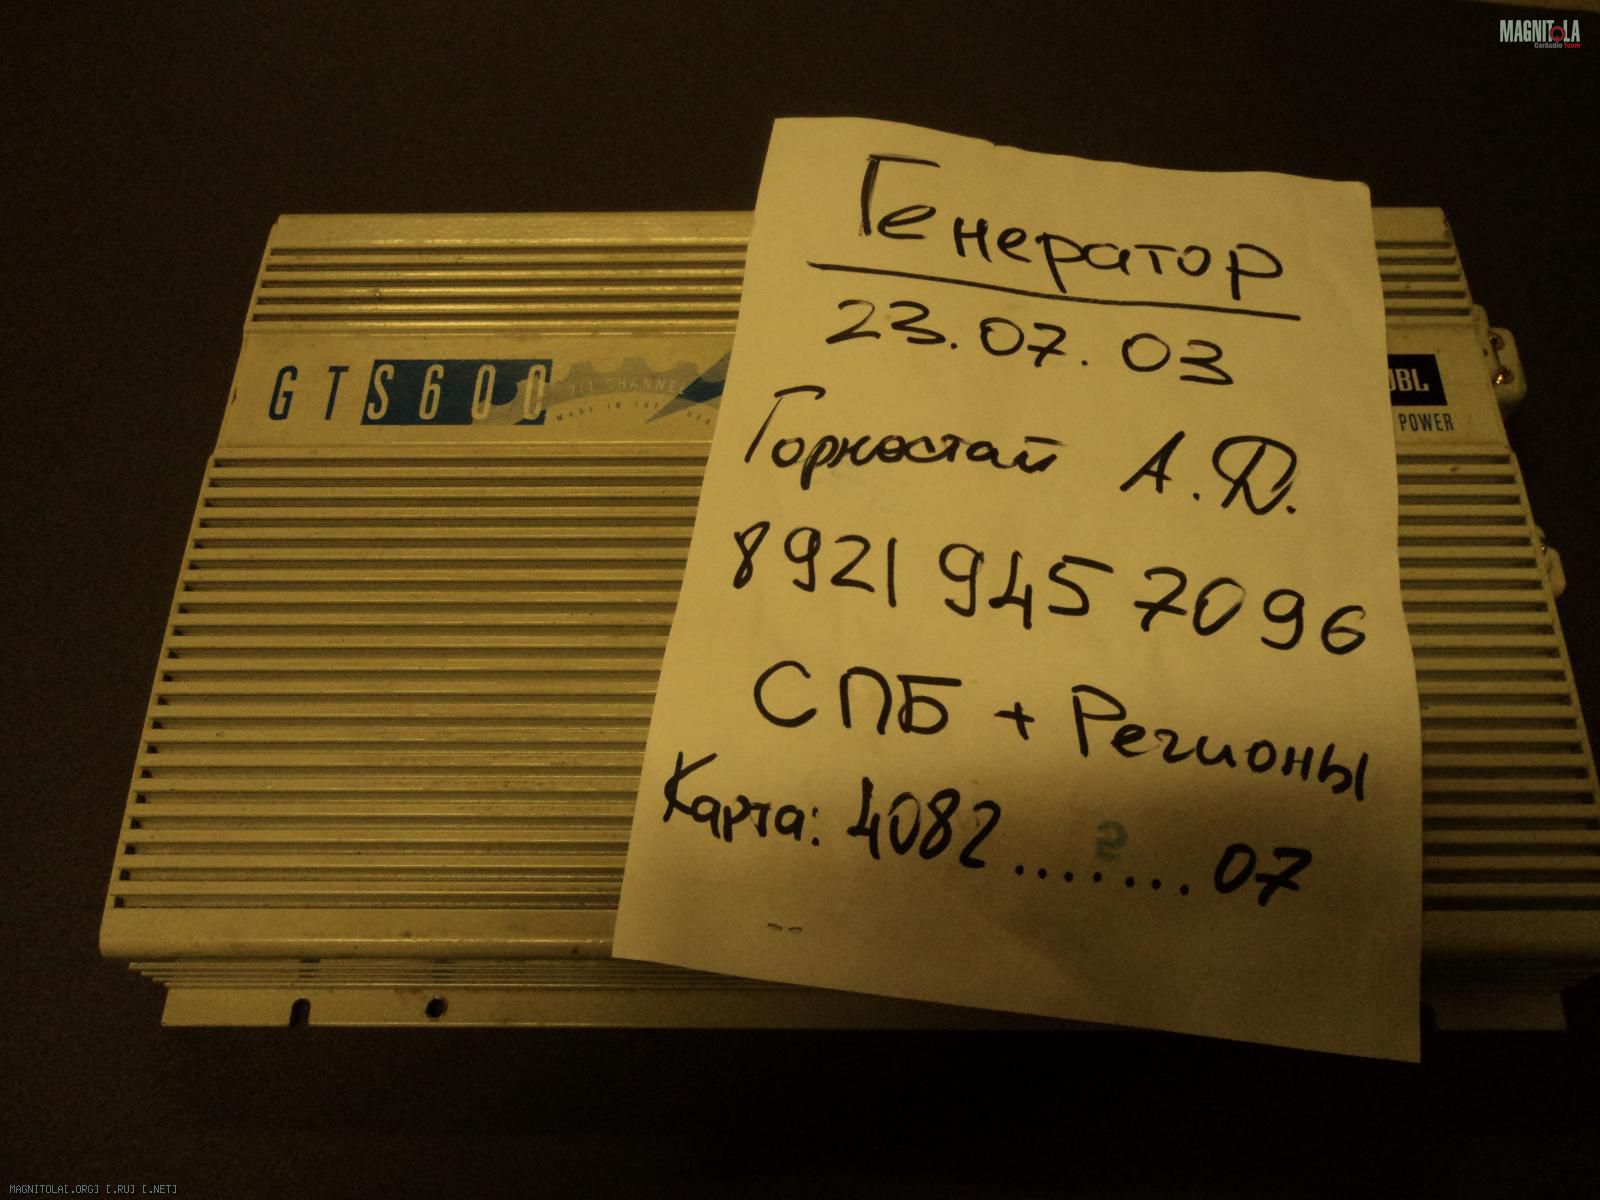 MAGNITOLA
CarAudio Team
GTS600
2/1 CHANNEL
MADE IN THE USA
JBL
POWER
Генератор
23.07.03
Горностай А.Д.
8921 945 7096
СПБ + Регионы
Карта: 4082 ....... 07
MAGNITOLA[.ORG] [.RU] [.NET]